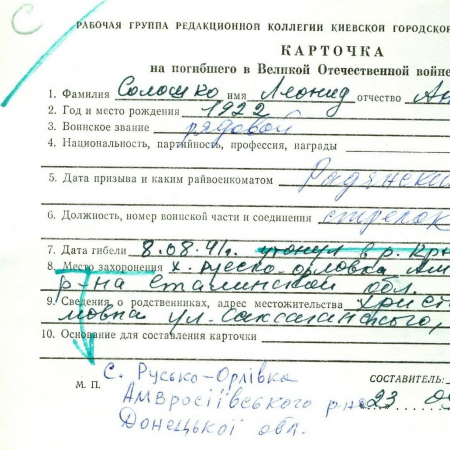 С
РАБОЧАЯ ГРУППА РЕДАКЦИОННОЙ КОЛЛЕГИИ КИЕВСКОЙ ГОРОДСКОЙ
КАРТОЧКА
на погибшего в Великой Отечественной войне
1. Фамилия Солошко имя Леонид отчество Ан
2. Год и место рождения 1922
3. Воинское звание рядовой
4. Национальность, партийность, профессия, награды
5. Дата призыва и каким райвоенкоматом Радянский
6. Должность, номер воинской части и соединения стрелок
7. Дата гибели 8.08.41г. утонул в р.
8. Место захоронения х. Руско-орловка Ам
р-на Сталинской обл.
9. Сведения о родственниках, адрес местожительства Христ
ул. Саксаганского,
10. Основание для составления карточки
М. П. СОСТАВИТЕЛЬ:
с. Русько-Орлівка
Амвросіївського р-на 23 0
Донецької обл.